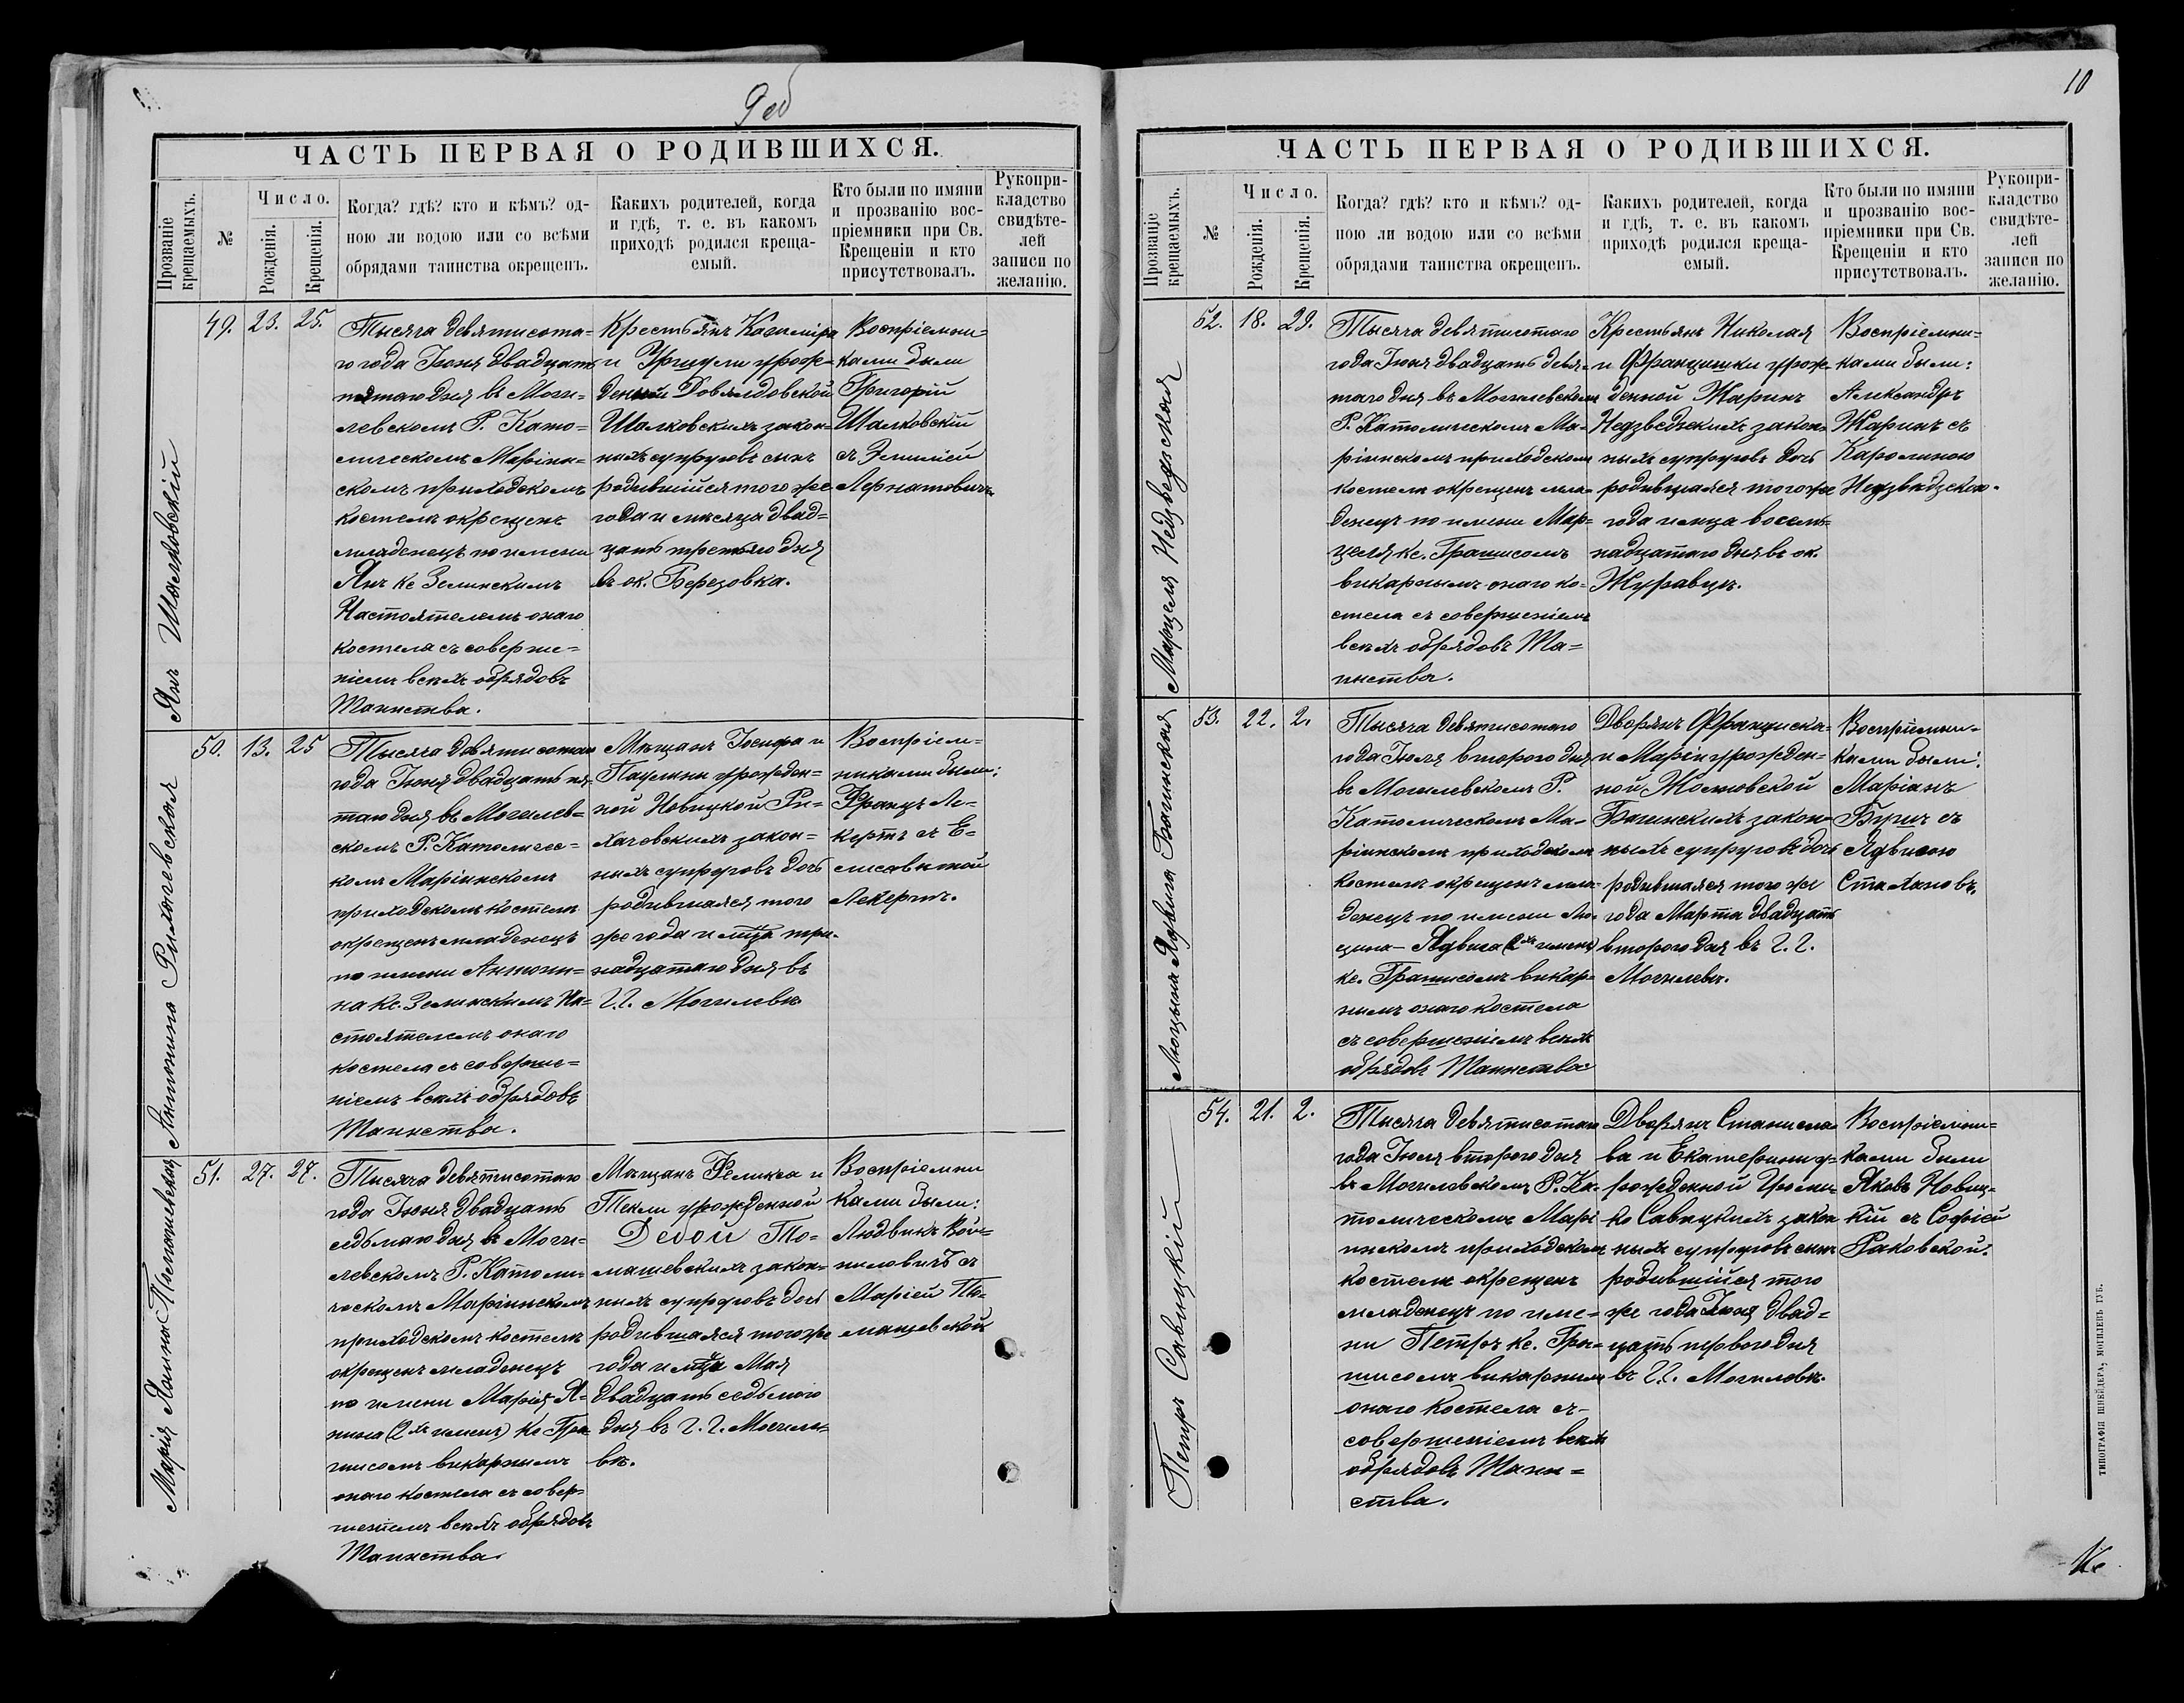 9 об
ЧАСТЬ ПЕРВАЯ О РОДИВШИХСЯ.
Прозваніе крещаемыхъ.
№
Число.
Рожденія.
Крещенія.
Когда? гдѣ? кто и кѣмъ? од-
ною ли водою или со всѣми
обрядами таинства окрещенъ.
Какихъ родителей, когда
и гдѣ, т. е. въ какомъ
приходѣ родился креща-
емый.
Кто были по имяни
и прозванію вос-
пріемники при Св.
Крещеніи и кто
присутствовалъ.
Рукопри-
кладство
свидѣте-
лей
записи по
желанію.
Янъ Шалковскій
49. 23. 25.
Тысяча девятисота-
го года Іюня двадцать
пятаго дня въ Моги-
левскомъ Р. Като-
лическомъ Маріин-
скомъ приходскомъ
костелѣ окрещенъ
младенецъ по имени
Янъ кс Зелинскимъ
Настоятелемъ онаго
костела съ соверше-
ніемъ всѣхъ обрядовъ
Таинства.
Крестьянъ Казиміра
и Уршули урож-
денной Довялдовской
Шалковскихъ закон-
ныхъ супруговъ сынъ
родившійся того же
года и мѣсяца двад-
цать третьяго дня
въ ок. Березовка.
Воспріемни-
ками были
Григорій
Шалковскій
съ Эмиліей
50. 13. 25
Антонина Рихачевская
Тысяча девятисотаго
года Іюня двадцать пя-
таго дня въ Могилев-
скомъ Р. Католичес-
комъ Маріинскомъ
приходскомъ костелѣ
окрещенъ младенецъ
по имени Антони-
на Кс. Зелинскимъ На-
стоятелемъ онаго
костела съ соверше-
ніемъ всѣхъ обрядовъ
Таинства.
Мѣщанъ Іосифа и
Паулины урожден-
ной Новицкой Ри-
хачевскихъ закон-
ныхъ супруговъ дочь
родившаяся того
же года и мѣца три-
надцатаго дня въ
г. г. Могилевѣ
Воспріем-
никами были:
Францъ Ле-
кертъ съ Е-
лисаветой
Лекертъ.
51. 27. 27.
Марія Янина
Тысяча девятисотаго
года Іюня двадцать
седьмаго дня въ Моги-
левскомъ Р. Католи-
ческомъ Маріинскомъ
приходскомъ костелѣ
окрещенъ младенецъ
по имени Марія Я-
нина (2хъ именъ) Кс Гра-
шисомъ викарнымъ
онаго костела съ совер-
шеніемъ всѣхъ обрядовъ
Таинства.
Мѣщанъ Феликса и
Текли урожденной
Дедой То-
машевскихъ закон-
ныхъ супруговъ дочь
родившаяся того же
года и мѣца Мая
двадцать седьмого
дня въ г. г. Могиле-
вѣ.
Воспріемни
ками были:
Людвикъ Вой-
ниловичъ съ
Маріей То-
машевской
10
ЧАСТЬ ПЕРВАЯ О РОДИВШИХСЯ.
Прозваніе крещаемыхъ.
№
Число.
Рожденія.
Крещенія.
Когда? гдѣ? кто и кѣмъ? од-
ною ли водою или со всѣми
обрядами таинства окрещенъ.
Какихъ родителей, когда
и гдѣ, т. е. въ какомъ
приходѣ родился креща-
емый.
Кто были по имяни
и прозванію вос-
пріемники при Св.
Крещеніи и кто
присутствовалъ.
Рукопри-
кладство
свидѣте-
лей
записи по
желанію.
52. 18. 29.
Марцеля Недзведзская
Тысяча девятисотаго
года Іюня двадцать девя-
таго дня въ Могилевскомъ
Р. Католическомъ Ма-
ріинскомъ приходскомъ
костелѣ окрещенъ мла-
денецъ по имени Мар-
целя кс. Грашисомъ
викарнымъ онаго ко-
стела съ совершеніемъ
всѣхъ обрядовъ Та-
инства.
Крестьянъ Николая
и Францишки урож-
денной Жаринъ
Недзведзскихъ закон-
ныхъ супруговъ дочь
родившаяся того же
года и мѣца восем-
надцатаго дня въ ок.
Журавцѣ.
Воспріемни-
ками были:
Александръ
Жаринъ съ
Каролиною
Недзвѣдзскою.
53. 22. 2.
Люцына Ядвига Багинская
Тысяча девятисотаго
года Іюля второго дня
въ Могилевскомъ Р.
Католическомъ Ма-
ріинскомъ приходскомъ
костелѣ окрещенъ мла-
денецъ по имени Лю-
цина-Ядвига (2хъ именъ)
кс. Грашисомъ викар-
нымъ онаго костела
съ совершеніемъ всѣхъ
обрядовъ Таинства
Дворянъ Франциска
и Маріи урожден-
ной Жолновской
Багинскихъ закон-
ныхъ супруговъ дочь
родившаяся того же
года Марта двадцать
второго дня въ г. г.
Могилевѣ.
Воспріемни-
ками были:
Маріанъ
съ
Ядвигою
54. 21. 2.
Петръ Савицкій
Тысяча девятисотаго
года Іюля второго дня
въ Могилевскомъ Р. Ка-
толическомъ Марі-
инскомъ приходскомъ
костелѣ окрещенъ
младенецъ по име-
ни Петръ кс. Гра-
шисомъ викарнымъ
онаго костела съ-
совершеніемъ всѣхъ
обрядовъ Таин-
ства.
Дворянъ Станисла-
ва и Екатерины у-
рожденной Громы-
ко Савицкихъ закон
ныхъ супруговъ сынъ
родившійся того
же года Іюня двад-
цать перваго дня
въ г. г. Могилевѣ.
Воспріемни-
ками были
Яковъ Новиц-
кій съ Софіей
Раковской.
ТИПОГРАФІЯ ШНЕЙДЕРА, МОГИЛЕВЪ ГУБ.